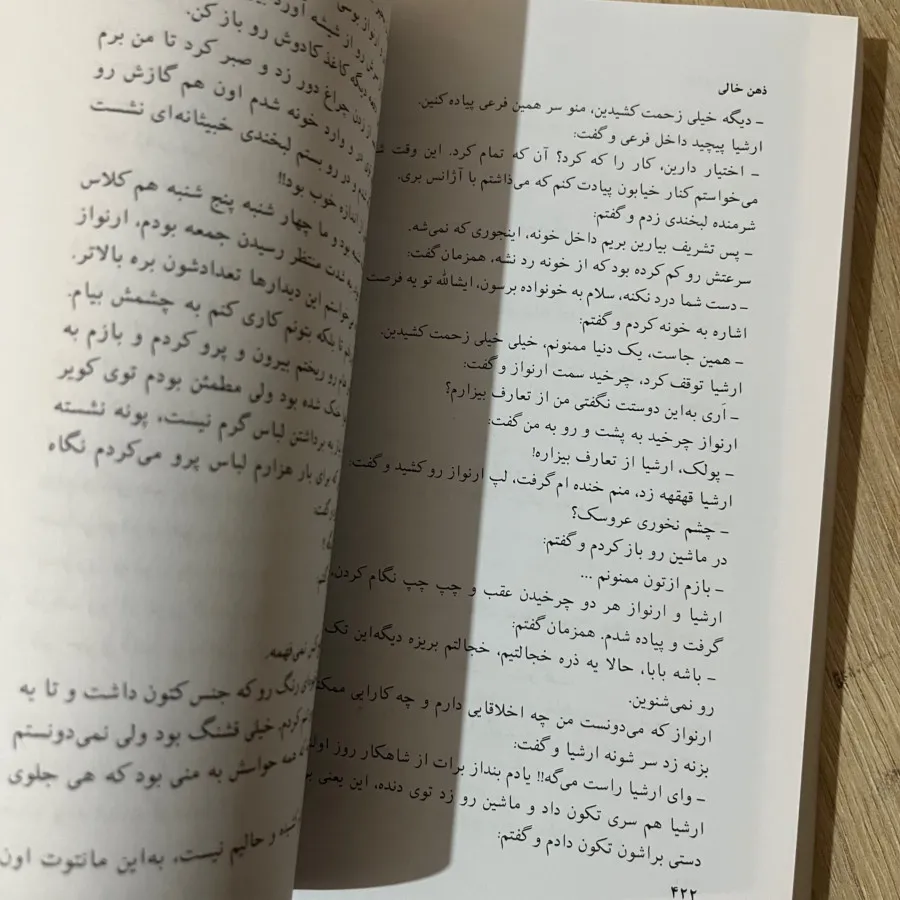 ذهن خالی
– دیگه خیلی زحمت کشیدین، منو سر همین فرعی پیاده کنین.
ارشیا پیچید داخل فرعی و گفت:
– اختیار دارین، کار را که کرد؟ آن که تمام کرد. این وقت
می‌خواستم کنار خیابون پیادت کنم که می‌ذاشتم با آژانس بری.
شرمنده لبخندی زدم و گفتم:
– پس تشریف بیارین بریم داخل خونه، اینجوری که نمی‌شه.
سرعتش رو کم کرده بود که از خونه رد نشه، همزمان گفت:
– دست شما درد نکنه، سلام به خونواده برسون، ایشالله تو یه فرصت
اشاره به خونه کردم و گفتم:
– همین جاست، یک دنیا ممنونم، خیلی خیلی زحمت کشیدین.
ارشیا توقف کرد، چرخید سمت ارنواز و گفت:
– آری به‌این دوستت نگفتی من از تعارف بیزارم؟
ارنواز چرخید به پشت و رو به من گفت:
– پولک، ارشیا از تعارف بیزاره!
ارشیا قهقهه زد، منم خنده ام گرفت، لپ ارنواز رو کشید و گفت:
– چشم نخوری عروسک؟
در ماشین رو باز کردم و گفتم:
– بازم ازتون ممنونم ...
ارشیا و ارنواز هر دو چرخیدن عقب و چپ چپ نگام کردن،
گرفت و پیاده شدم. همزمان گفتم:
– باشه بابا، حالا یه ذره خجالتیم، خجالتم بریزه دیگه‌این تک
رو نمی‌شنوین.
ارنواز که می‌دونست من چه اخلاقایی دارم و چه کارایی
بزنه زد سر شونه ارشیا و گفت:
– وای ارشیا راست می‌گه!! یادم بنداز برات از شاهکار روز
ارشیا هم سری تکون داد و ماشین رو زد توی دنده، این یعنی
دستی براشون تکون دادم و گفتم:
۴۲۲
دیگه کاغذ کادوش رو باز کن.
از زدن چراغ دور زد و صبر کرد تا من برم
در و وارد خونه شدم اون هم گازش رو
و در رو بستم لبخندی خبیثانه‌ای نشست
اندازه خوب بود!!
بود و ما چهار شنبه پنج شنبه هم کلاس
شدت منتظر رسیدن جمعه بودم، ارنواز
این دیدارها تعدادشون بره بالاتر.
تا بلکه بتونم کاری کنم به چشمش بیام.
رو ریختم بیرون و پرو کردم و بازم به
شده بود ولی مطمئن بودم توی کویر
به برداشتن لباس گرم نیست، پونه نشسته
که برای بار هزارم لباس پرو می‌کردم نگاه
نمی‌فهمه.
رنگ رو که جنس کتون داشت و تا یه
کردم. خیلی قشنگ بود ولی نمی‌دونستم
همه حواسش به منی بود که هی جلوی
و حالیم نیست، به‌این مانتوت اون